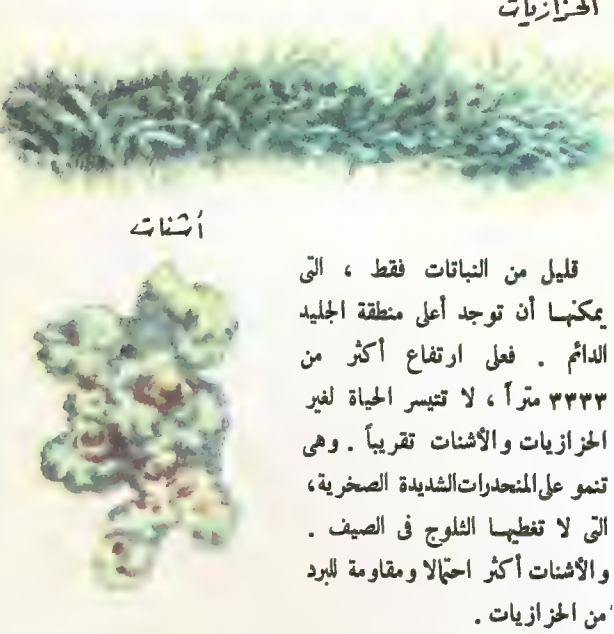 الحزازيات
أشنات
قليل من النباتات فقط ، التى
يمكنها أن توجد أعلى منطقة الجليد
الدائم . فعلى ارتفاع أكثر من
٣٣٣٣ متراً ، لا تتيسر الحياة لغير
الحزازيات والأشنات تقريباً . وهى
تنمو على المنحدرات الشديدة الصخرية،
التى لا تغطيها الثلوج فى الصيف .
والأشنات أكثر احتمالا ومقاومة للبرد
من الحزازيات .